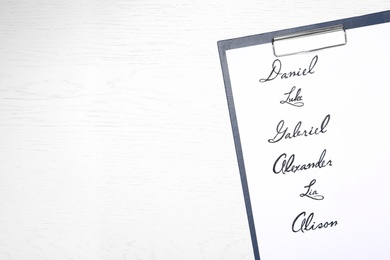 Daniel
Luke
Gabriel
Alexander
Lia
Alison